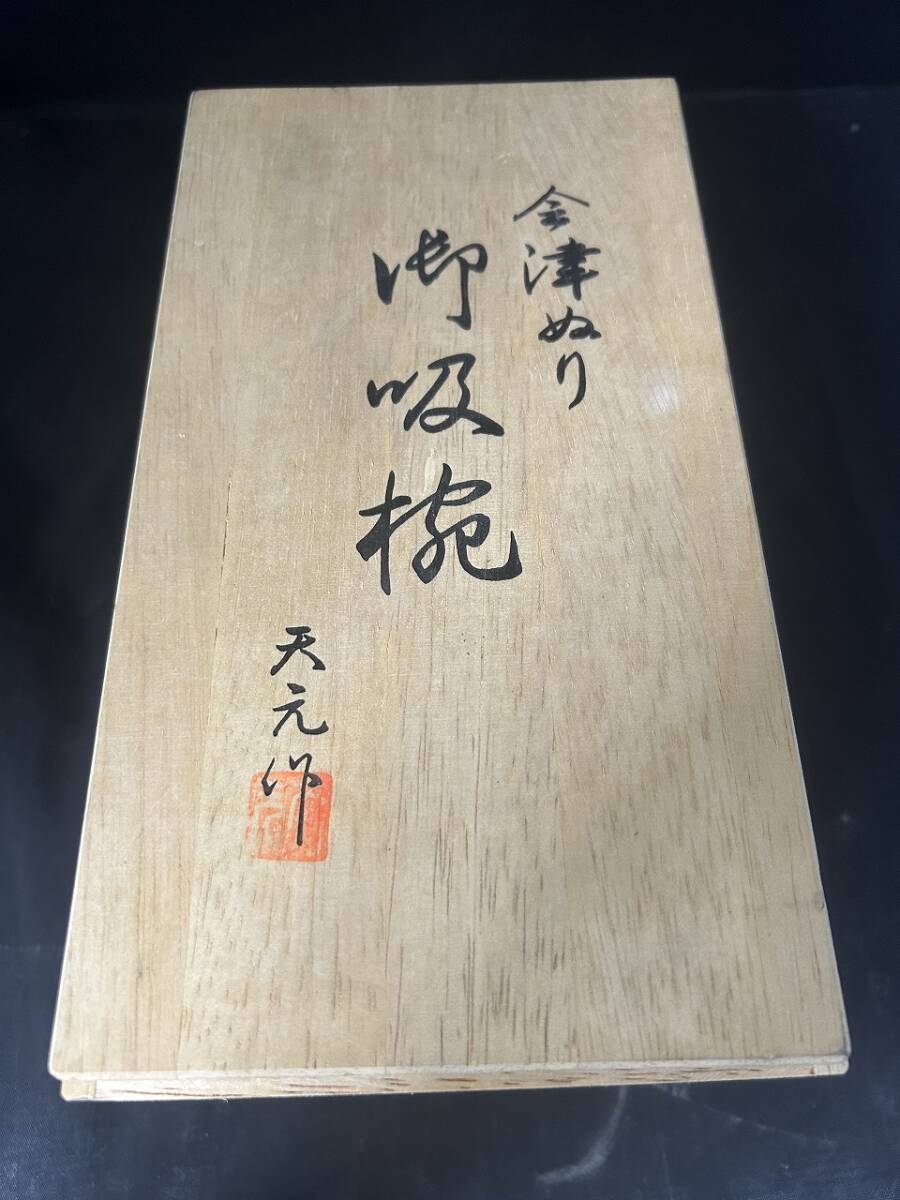 会津ぬり
御吸椀
天元作